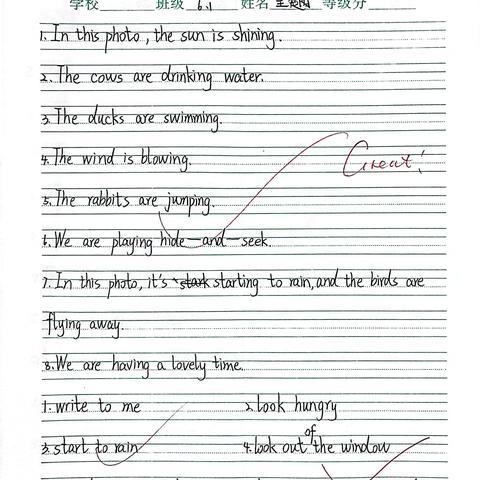 学校 班级 6.1 姓名 等级分
1. In this photo, the sun is shining.
2. The cows are drinking water.
3. The ducks are swimming.
4. The wind is blowing.
Great!
5. The rabbits are jumping.
6. We are playing hide-and-seek.
7. In this photo, it's stark starting to rain, and the birds are
flying away.
8. We are having a lovely time.
1. write to me 2. look hungry
3. start to rain 4. look out of the window